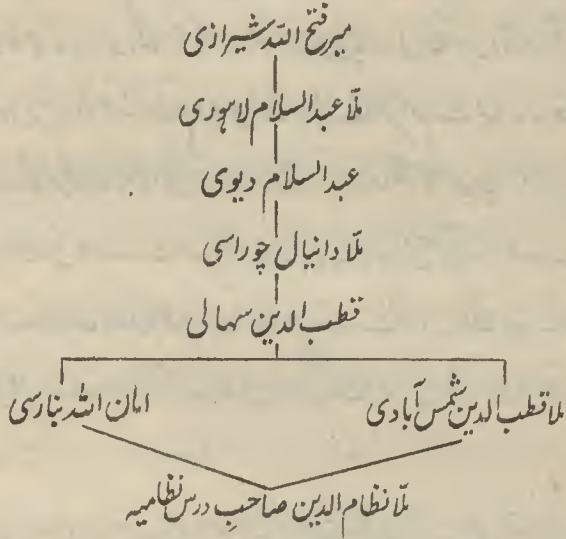 میر فتح اللہ شیرازی
ملّا عبدالسلام لاہوری
عبدالسلام دیوی
ملّا دانیال چوراسی
قطب الدین سہالی
ملا قطب الدین شمس آبادی امان اللہ بنارسی
ملّا نظام الدین صاحبِ درس نظامیہ